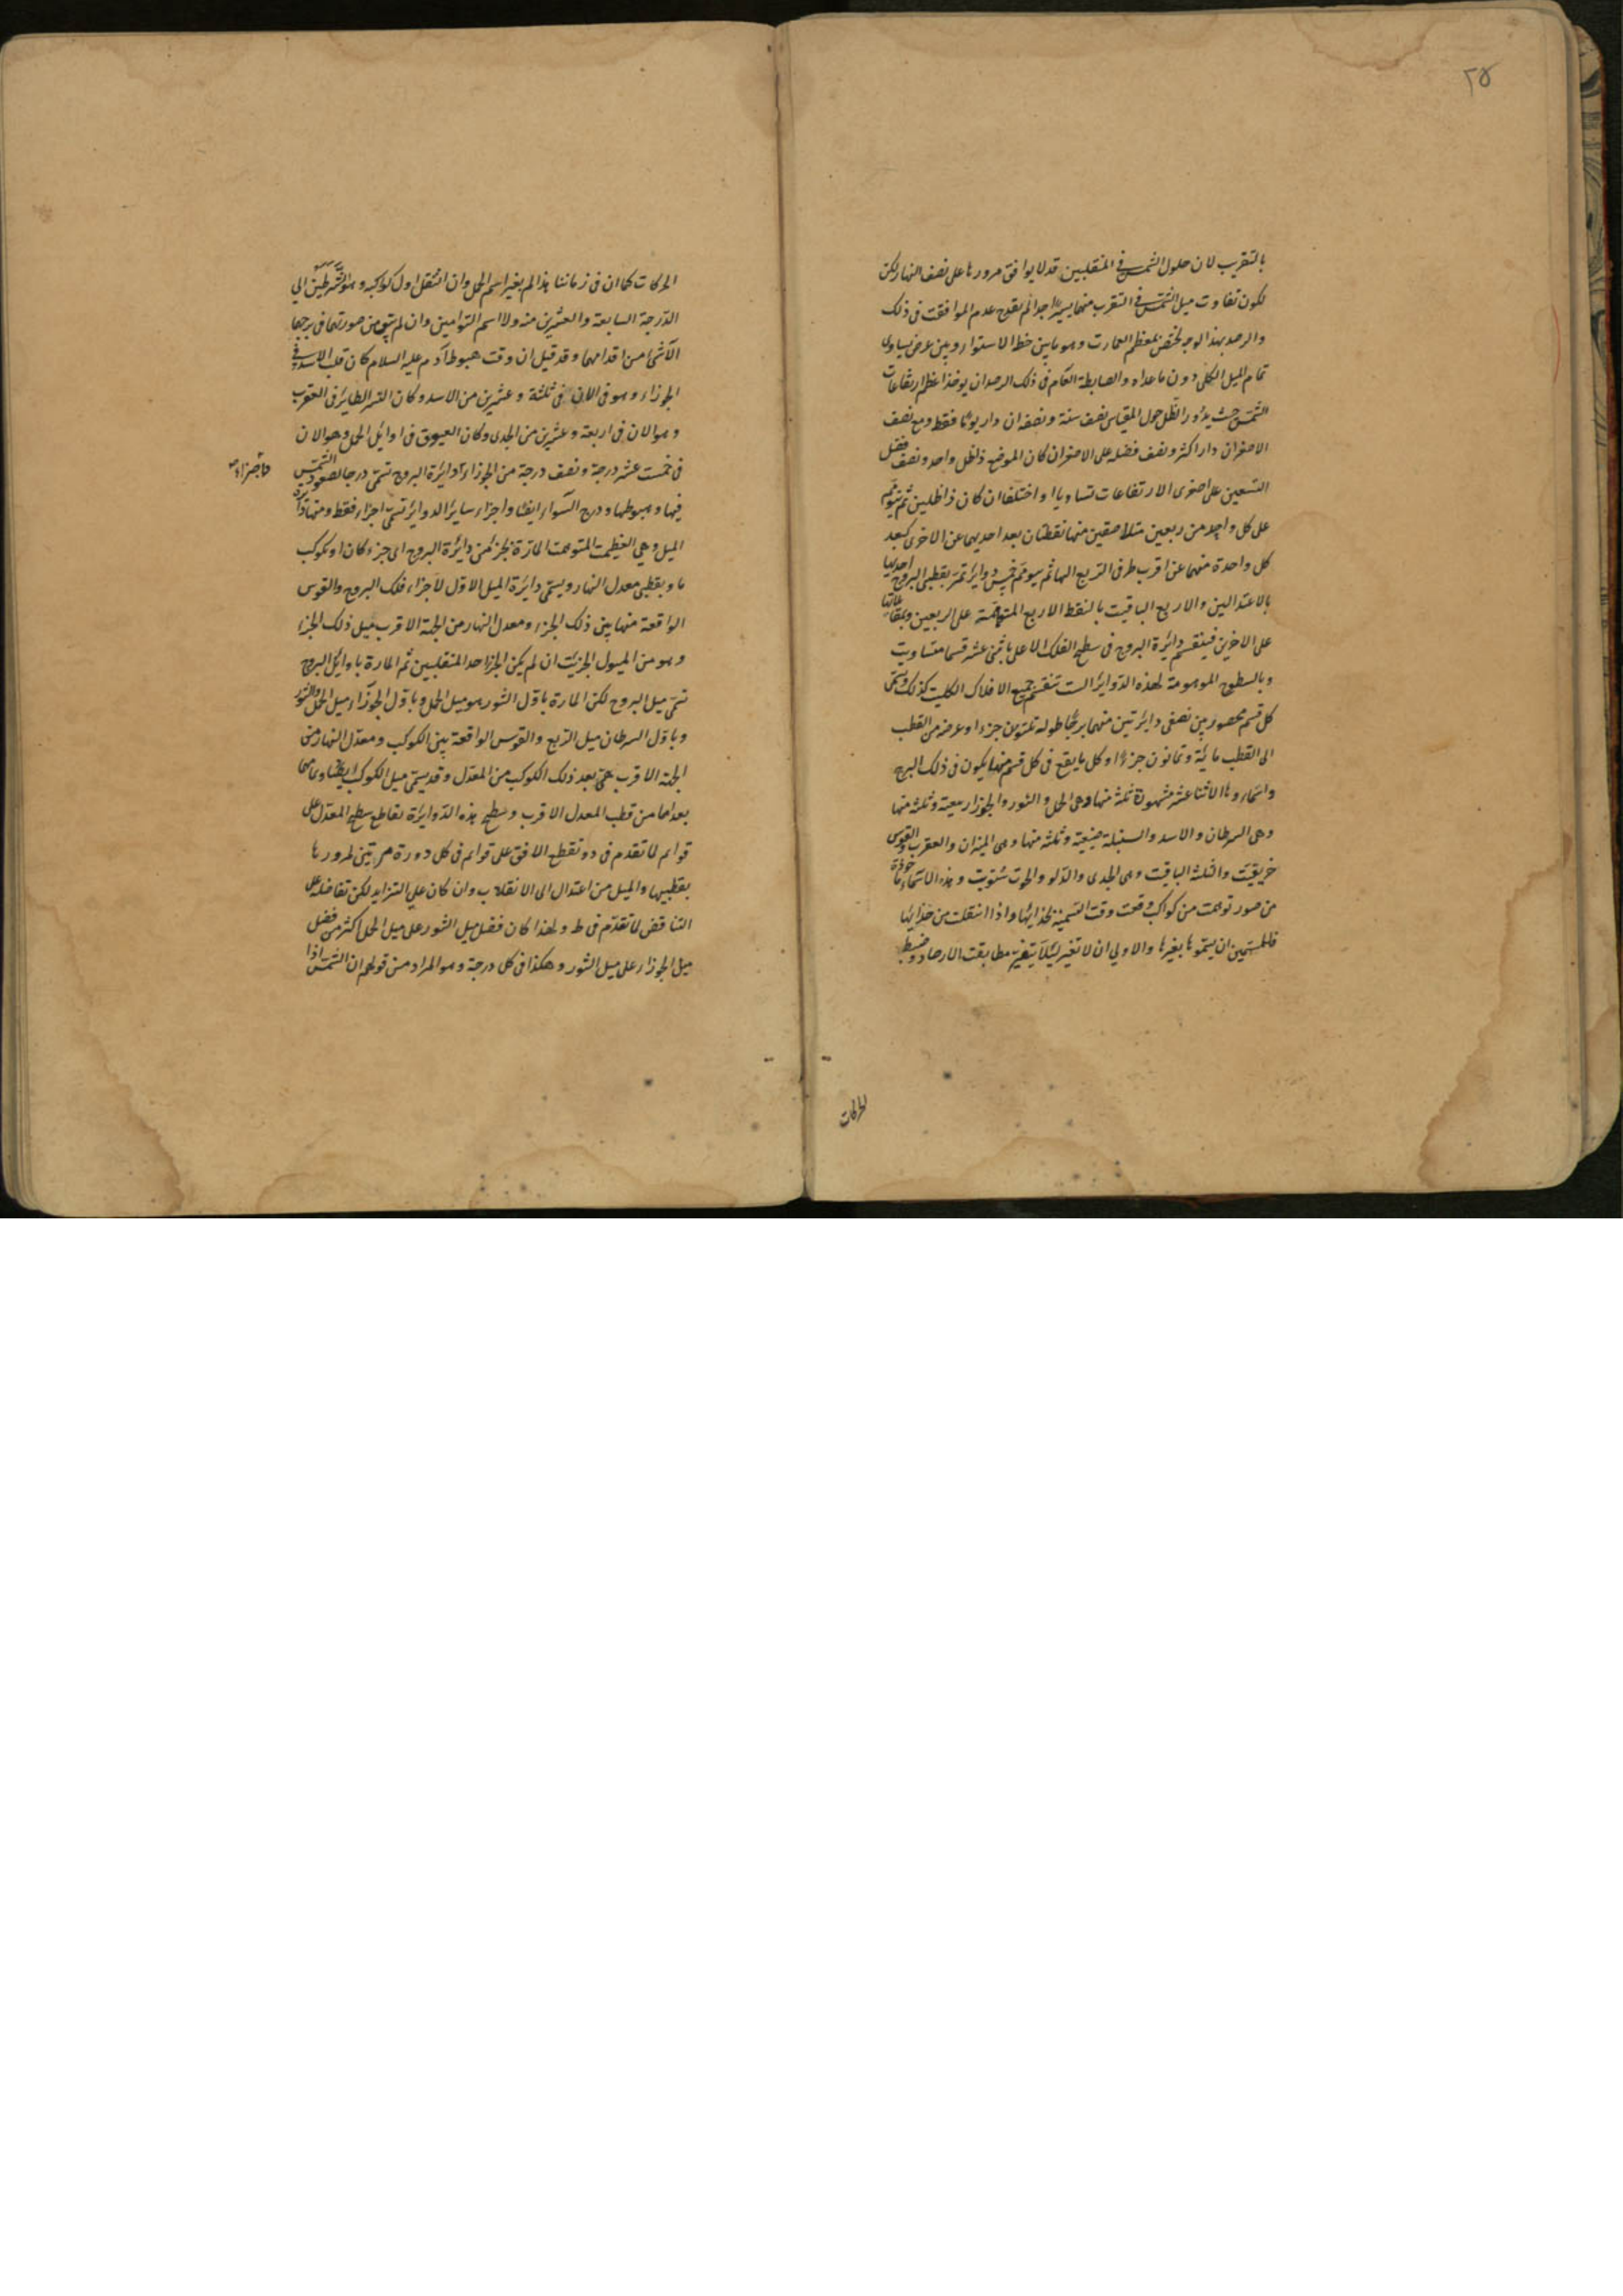 ٢٥
بالتقريب لان حلول الشمس فى المنقلبين قد لا يوافق مرورها على نصف النهار لكن
لكون تفاوت ميل الشمس فى القرب منهما يسيرا جدا لم يقدح عدم الموافقة فى ذلك
والرصد بهذا الوجه يختص بمعظم العمارت وهو ما بين خط الاستواء وبين عرض يساوى
تمام الميل الكلى دون ما عداه والضابطة العام فى ذلك الرصد ان يوخذ اعظم ارتفاعات
الشمس حيث يدور الظل حول المقياس نصف سنة ونصفه ان دار يوما فقط ومع نصف
الاصغر ان دار اكثر ونصف فضله على الاصغر ان كان الموضع ذا ظل واحد ونصف فضل
التسعين على اصغرى الارتفاعات تساويا او اختلفا ان كان ذا ظلين ثم يتوهم
على كل واحد من ربعين متلاصقين منها نقطتان بعد احديهما عن الاخرى كبعد
كل واحدة منهما عن اقرب طرفى الربع اليها ثم يتوهم خمس دوائر تمر بقطبى البروج احديها
بالاعتدالين والاربع الباقية بالنقط الاربع المتوهمة على الربعين وبمقابلاتها
على الاخرين فينقسم دائرة البروج فى سطح الفلك الاعلى باثنى عشر قسما متساوية
وبالسطوح الموهومة لهذه الدوائر الست تنقسم جميع الافلاك الكلية كذلك ويسمى
كل قسم محصور بين نصفى دائرتين منهما برجا طوله ثلثون جزءا وعرضه من القطب
الى القطب مائة وثمانون جزءا وكل ما يقع فى كل قسم منها يكون فى ذلك البرج
واسماوها الاثنا عشر مشهورة ثلثة منها وهى الحمل والثور والجوزا ربيعية وثلثة منها
وهى السرطان والاسد والسنبلة صيفية وثلثة منها وهى الميزان والعقرب والقوس
خريفية والثلثة الباقية وهى الجدى والدلو والحوت شتوية وهذه الاسماء ماخوذة
من صور توهمت من كواكب وقعت وقت التسمية بحذائها واذا انتقلت من حذائها
فللمسمين ان يسموها بغيرها والاولى ان لا تغير لئلا يتغير مطابقة الارصاد وضبط
الحركات
الحركات كما ان فى زماننا هذا لم يغير اسم الحمل وان انتقل اول كواكبه وهو الشرطين الى
الدرجة السابعة والعشرين منه ولا اسم التوامين وان لم يبق من صورتهما فى برجهما
الا شئ من اقدامهما وقد قيل ان وقت هبوط آدم عليه السلام كان قلب الاسد فى
الجوزاء وهو فى الان فى ثلثة وعشرين من الاسد وكان النسر الطاير فى العقرب
وهو الان فى اربعة وعشرين من الجدى وكان العيوق فى اوايل الحمل وهو الان
فى خمست عشر درجة ونصف درجة من الجوزاء دايرة البروج تسمى درجا لصعود الشمس
فيها وهبوطها ودرج السواء ايضا واجزاء ساير الدواير تسمى اجزاء فقط ومنها دائرة
الميل وهى العظيمة المتوهمة المارة بجزء من دايرة البروج اى جزء كان او بكوكب
ما وبقطبى معدل النهار ويسمى دايرة الميل الاول لاجزاء فلك البروج والقوس
الواقعة منها بين ذلك الجزء ومعدل النهار من الجهة الاقرب ميل ذلك الجزء
وهو من الميول الجزئية ان لم يكن الجزء احد المنقلبين ثم المارة باوايل البروج
تسمى ميل البروج لكن المارة باول الثور هو ميل الحمل وباول الجوزاء ميل الحمل والثور
وباول السرطان ميل الربع والقوس الواقعة بين الكوكب ومعدل النهار من
الجهة الاقرب هى بعد ذلك الكوكب من المعدل وقد يسمى ميل الكوكب ايضا وتمامهما
بعداهما من قطب المعدل الاقرب وسطح هذه الدوايرة تقاطع سطح المعدل على
قوايم لما تقدم فى دو تقطع الافق على قوايم فى كل دورة مرتين لمرورها
بقطبيها والميل من اعتدال الى الانقلاب وان كان على التزايد لكن تفاضله على
التناقض لما تقدم فى ط ولهذا كان فضل ميل الثور على ميل الحمل اكثر من فضل
ميل الجوزاء على ميل الثور وهكذا فى كل درجة وهو المراد من قولهم ان الشمس اذا